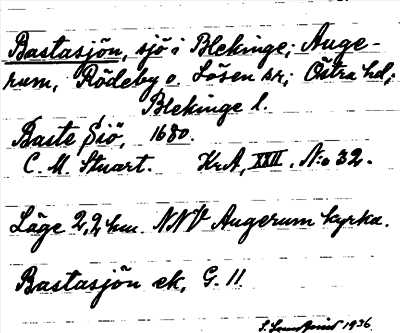 Bastasjön, sjö i Blekinge; Auge-
rum, Rödeby o. Lösen sr; Östra hd;
Blekinge l.
Baste Siö, 1680.
C. M. Stuart. KrA, XXII. N:o 32.
Läge 2,2 km. NNV Augerum kyrka.
Bastasjön ek. G. 11
1936